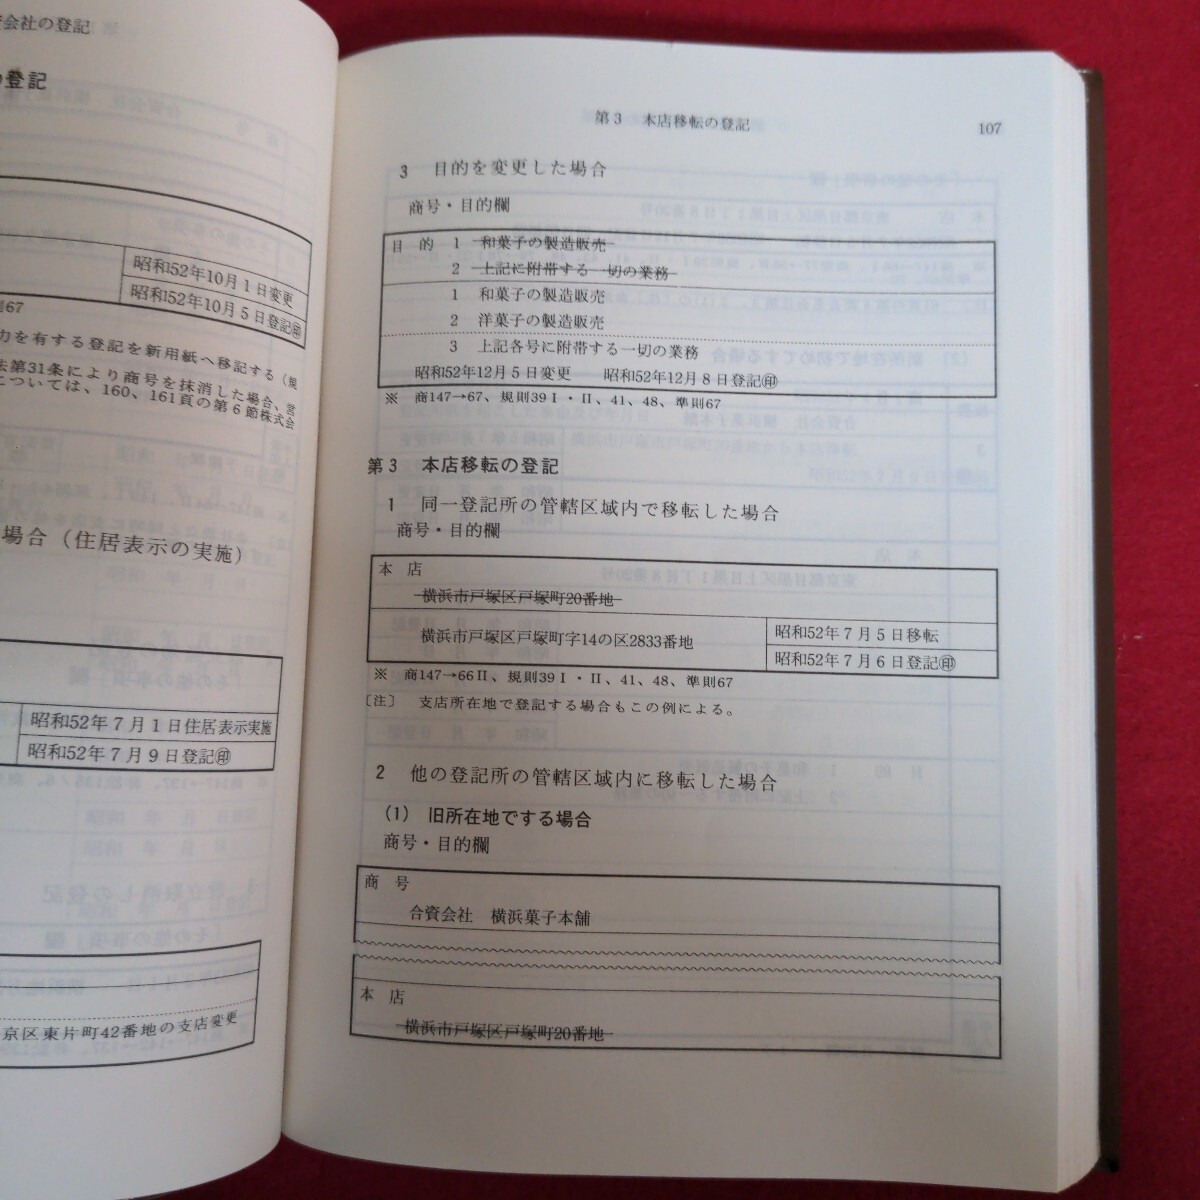 資会社の登記
の登記
昭和52年10月1日変更
昭和52年10月5日登記㊞
則67
力を有する登記を新用紙へ移記する（規
法第31条により商号を抹消した場合、営
については、160、161頁の第6節株式会
場合（住居表示の実施）
昭和52年7月1日住居表示実施
昭和52年7月9日登記㊞
京区東片町42番地の支店変更
第3　本店移転の登記
107
3　目的を変更した場合
商号・目的欄
目　的　1　和菓子の製造販売
2　上記に附帯する一切の業務
1　和菓子の製造販売
2　洋菓子の製造販売
3　上記各号に附帯する一切の業務
昭和52年12月5日変更　昭和52年12月8日登記㊞
※　商147→67、規則39Ⅰ・Ⅱ、41、48、準則67
第3　本店移転の登記
1　同一登記所の管轄区域内で移転した場合
商号・目的欄
本　店
横浜市戸塚区戸塚町20番地
横浜市戸塚区戸塚町字14の区2833番地
昭和52年7月5日移転
昭和52年7月6日登記㊞
※　商147→66Ⅱ、規則39Ⅰ・Ⅱ、41、48、準則67
〔注〕　支店所在地で登記する場合もこの例による。
2　他の登記所の管轄区域内に移転した場合
(1)　旧所在地でする場合
商号・目的欄
商　号
合資会社　横浜菓子本舗
本　店
横浜市戸塚区戸塚町20番地